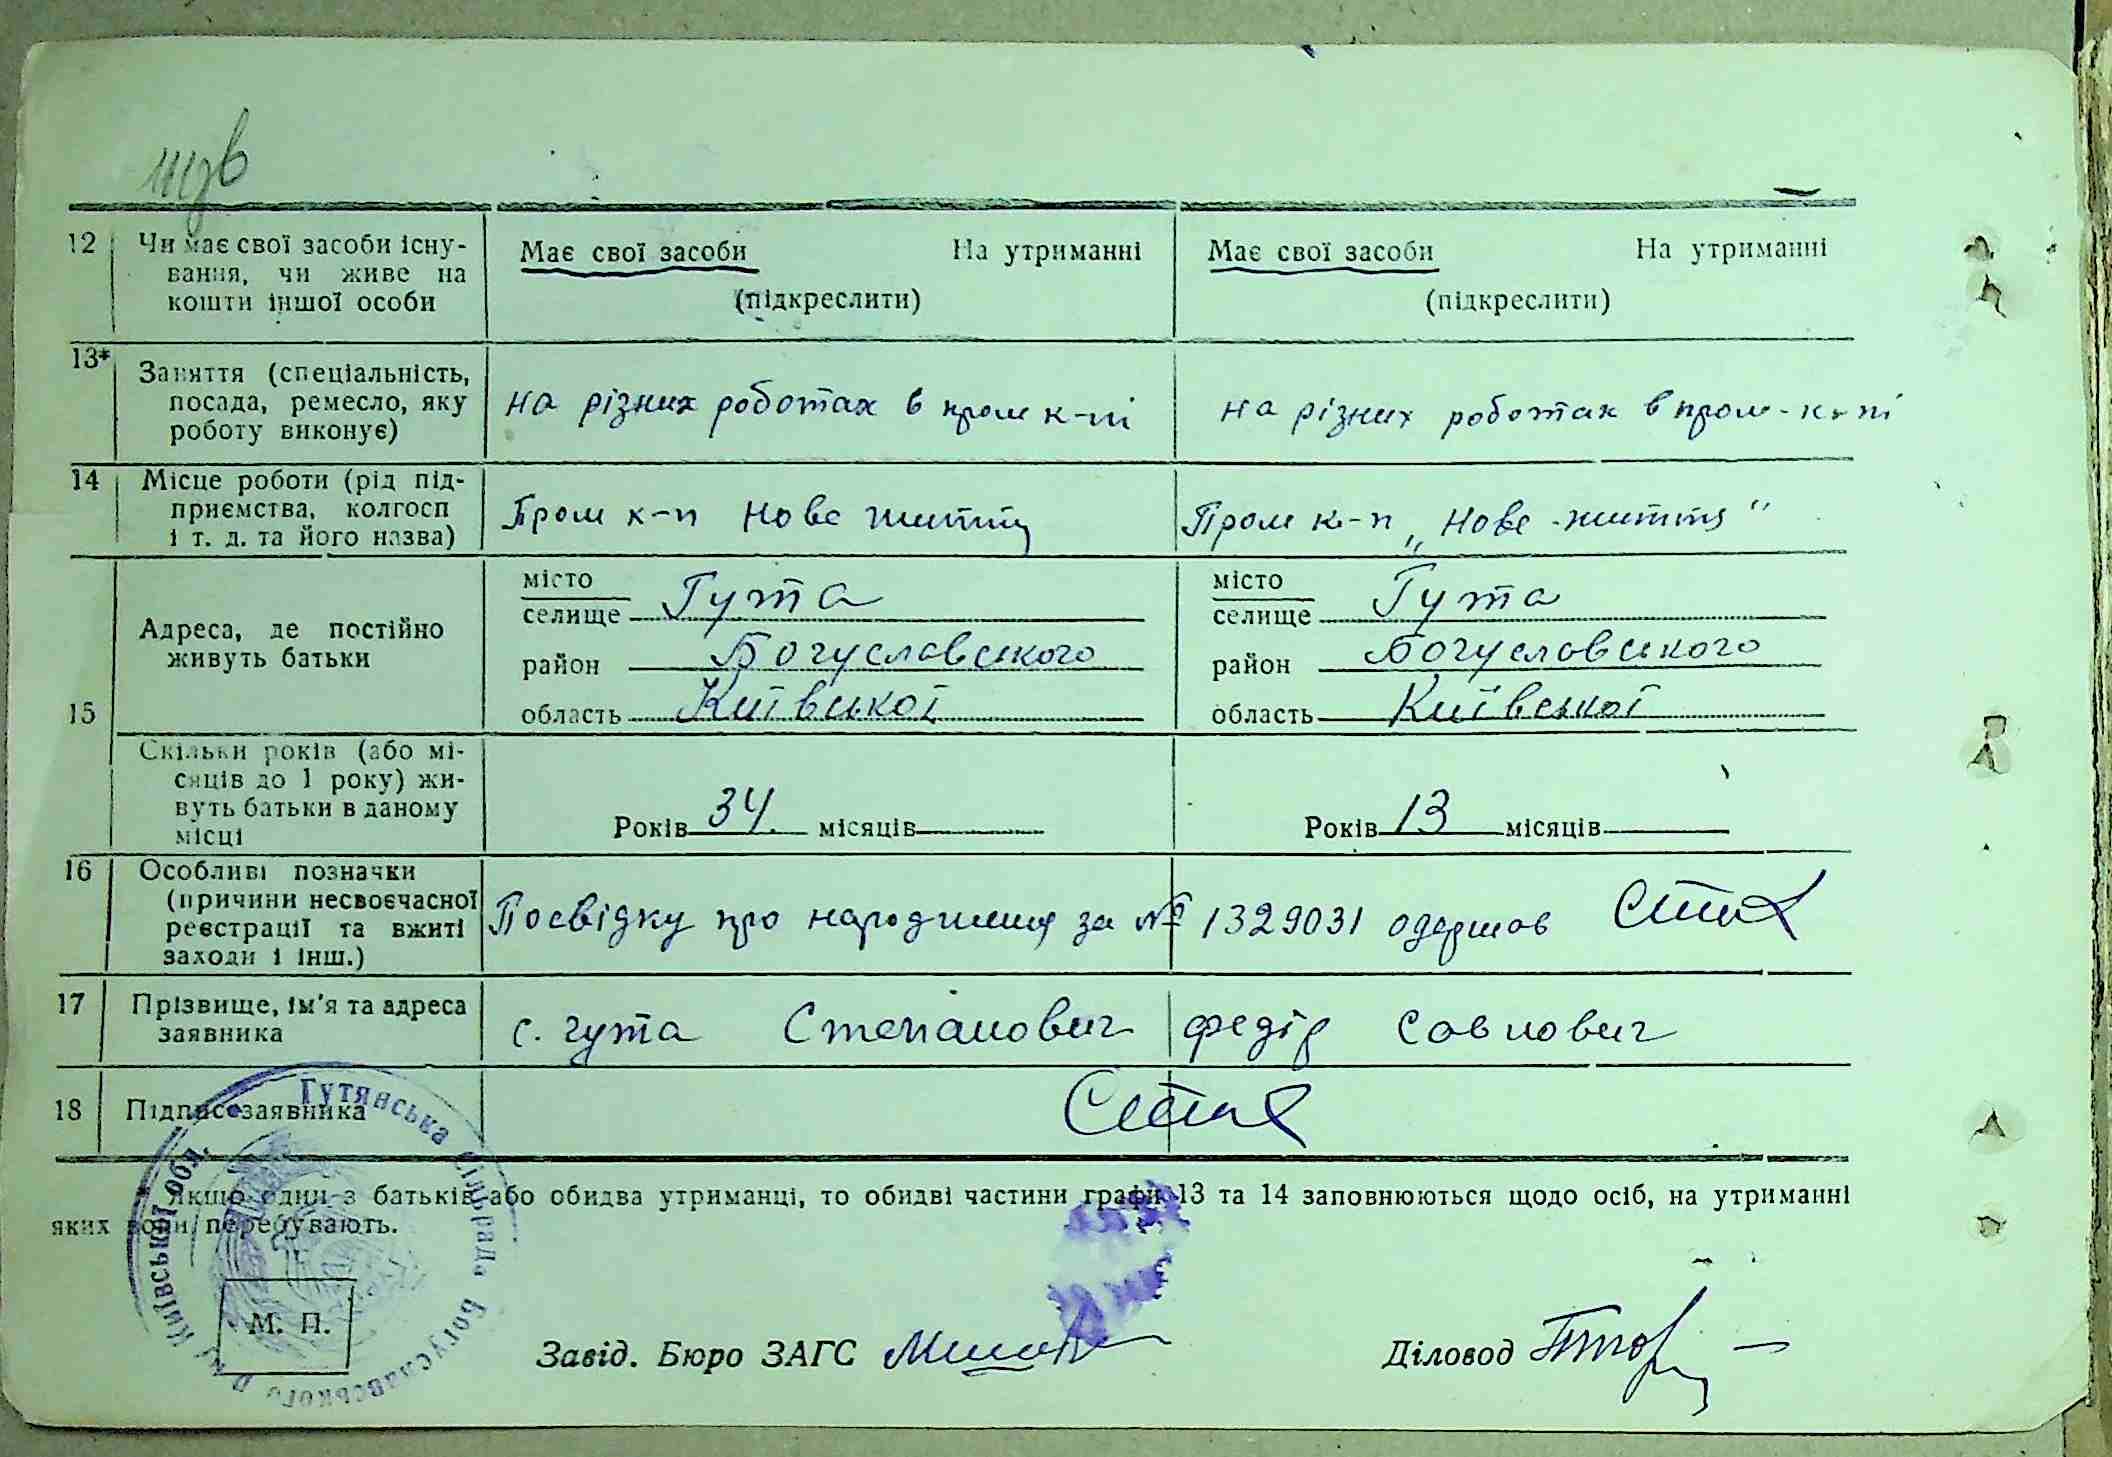 12 Чи має свої засоби існу-
вання, чи живе на
кошти іншої особи
Має свої засоби На утриманні
(підкреслити)
Має свої засоби На утриманні
(підкреслити)
13* Заняття (спеціальність,
посада, ремесло, яку
роботу виконує)
на різних роботах в пром к-пі
на різних роботах в пром-к-пі
14 Місце роботи (рід під-
приємства, колгосп
і т. д. та його назва)
Пром к-п Нове життя
Пром к-п „Нове-життя"
15 Адреса, де постійно
живуть батьки
місто
селище Гута
район Богуславського
область Київської
місто
селище Гута
район Богуславського
область Київської
Скільки років (або мі-
сяців до 1 року) жи-
вуть батьки в даному
місці
Років 34 місяців
Років 13 місяців
16 Особливі позначки
(причини несвоєчасної
реєстрації та вжиті
заходи і інш.)
Посвідку про народження за № 1329031 одержав
17 Прізвище, ім'я та адреса
заявника
с. гута Степанович федір Савович
18 Підпис заявника
Якщо один з батьків або обидва утриманці, то обидві частини графи 13 та 14 заповнюються щодо осіб, на утриманні
яких вони перебувають.
Гутянська сільрада Богуславського р-ну Київської обл.
М. П.
Завід. Бюро ЗАГС
Діловод